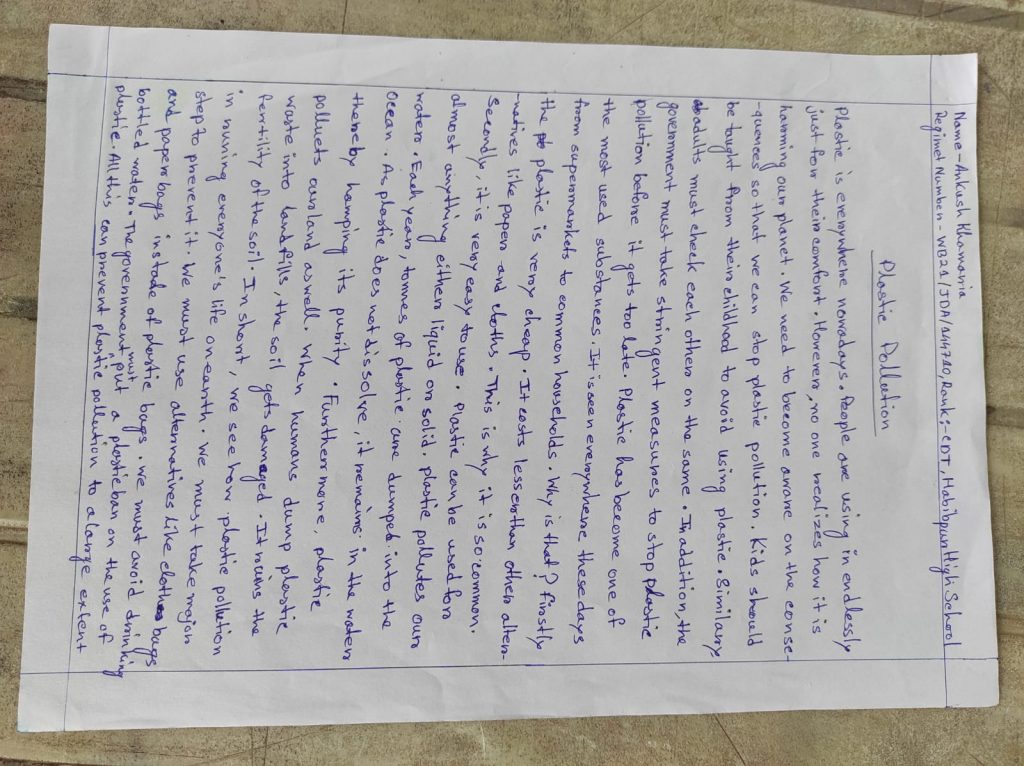 Name - Ankush Khamaria
Regimet Number - WB21/JDA/414710, Rank:- CDT, Habibpur High School
Plastic Pollution
Plastic is everywhere nowadays. People are using in endlessly
just for their comfort. However, no one realizes how it is
harming our planet. We need to become aware on the conse-
-quences so that we can stop plastic pollution. Kids should
be taught from their childhod to avoid using plastic. Similary
adults must check each other on the same. In addition, the
government must take stringent measures to stop plastic
pollution before it gets too late. Plastic has become one of
the most used substances. It is seen everywhere these days
from supermarkets to common households. Why is that? firstly
the plastic is very cheap. It costs lesser than other alter-
-natives like paper and cloths. This is why it is so common.
Secondly, it is very easy to use. Plastic can be used for
almost anything either liquid or solid. plastic pollutes our
water. Each year, tonnes of plastic are dumped into the
Ocean. As plastic does not dissolve, it remains in the water
thereby hamping its purity. Furthermore, plastic
pollutes our land as well. When humans dump plastic
waste into landfills, the soil gets damaged. It ruins the
fertility of the soil. In short, we see how plastic pollution
in ruining everyone's life on earth. We must take major
step to prevent it. We must use alternatives like cloth bags
and paper bags instade of plastic bags. We must avoid drinking
bottled water. The government must put a plastic ban on the use of
plastic. All this can prevent plastic pollution to a large extent